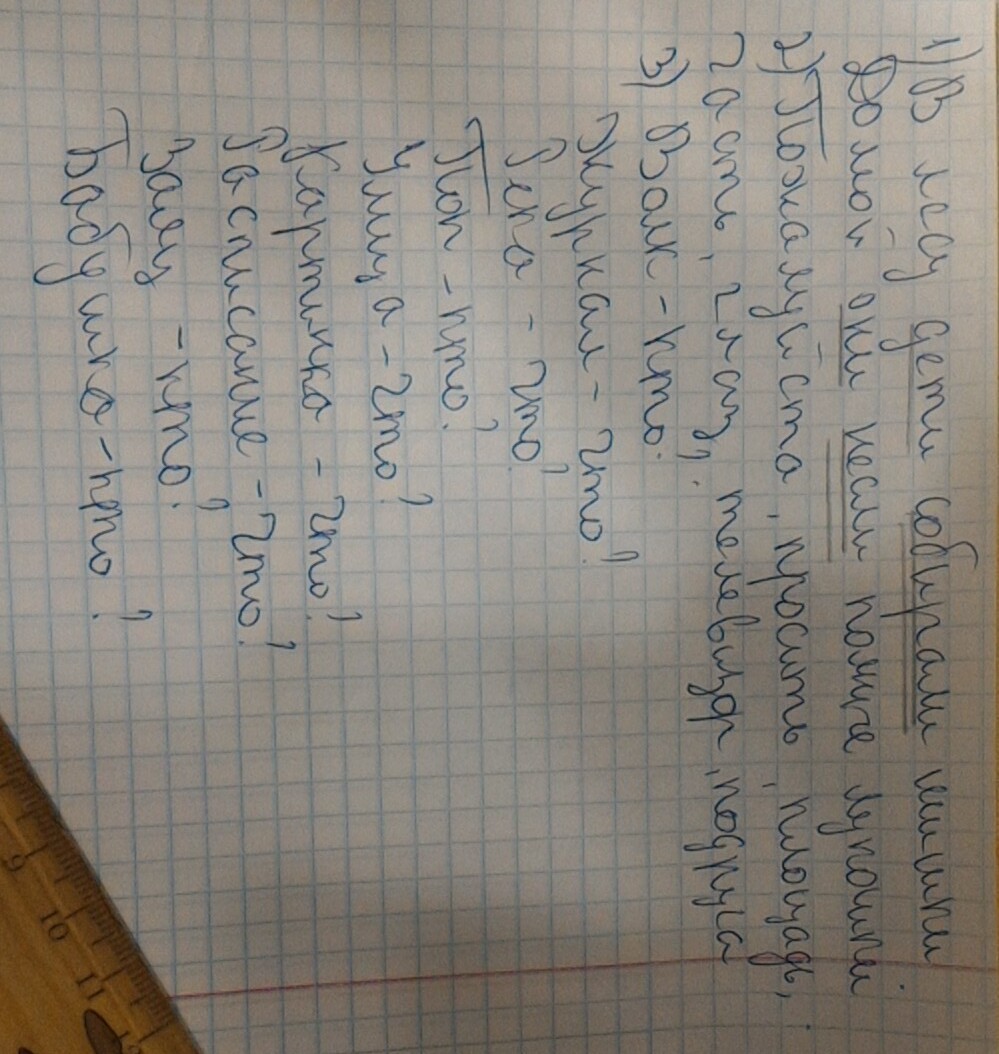 1) В лесу дети собирали шишки.
Домой они несли полные лукошки
2) Пожалуйста, просить, площадь,
часть, глаз, телевизор, подруга
3) Волк - кто?
Журнал - что?
Репа - что?
Поп - кто?
Улица - что?
Картинка - что?
Расписание - что?
Заяц - кто?
Бабушка - кто?
9
10
11